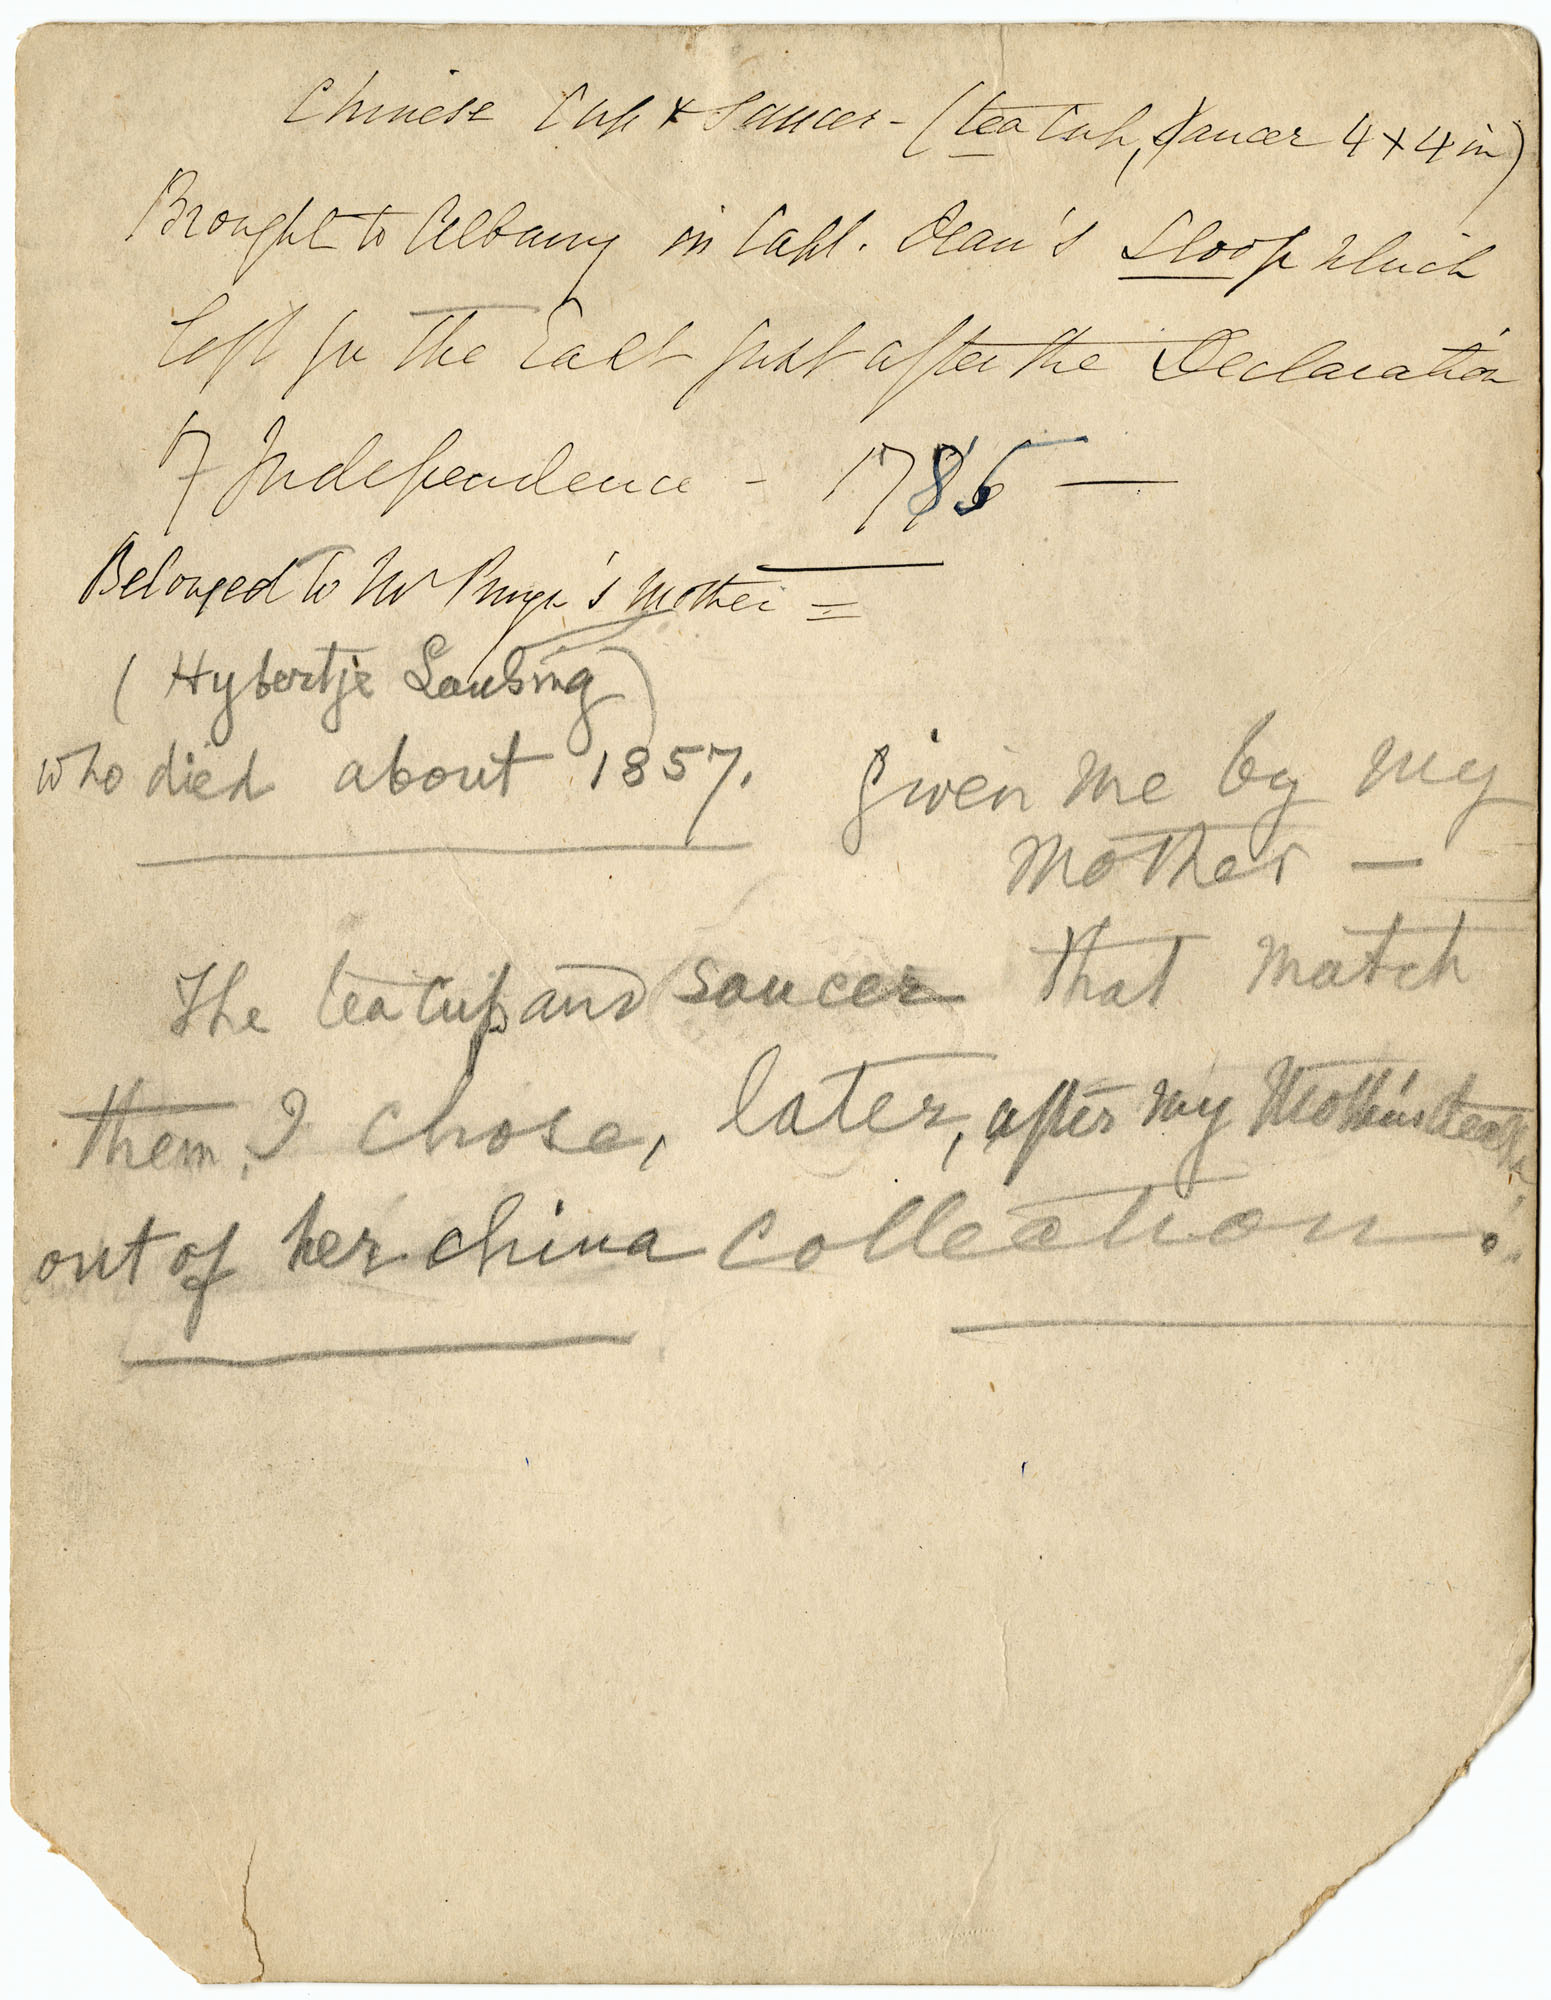 Chinese Cup & Saucer - (tea cup, saucer 4 x 4 in)
Brought to Albany in Capt. Dean's Sloop which
left for the East just after the Declaration
of Independence - 1785 —
Belonged to Mr Pruyn's Mother =
(Hybertje Lansing)
who died about 1857.
given me by my
Mother —
The teacup and saucer that match
them, I chose, later, after my Mother's death,
out of her china collection.